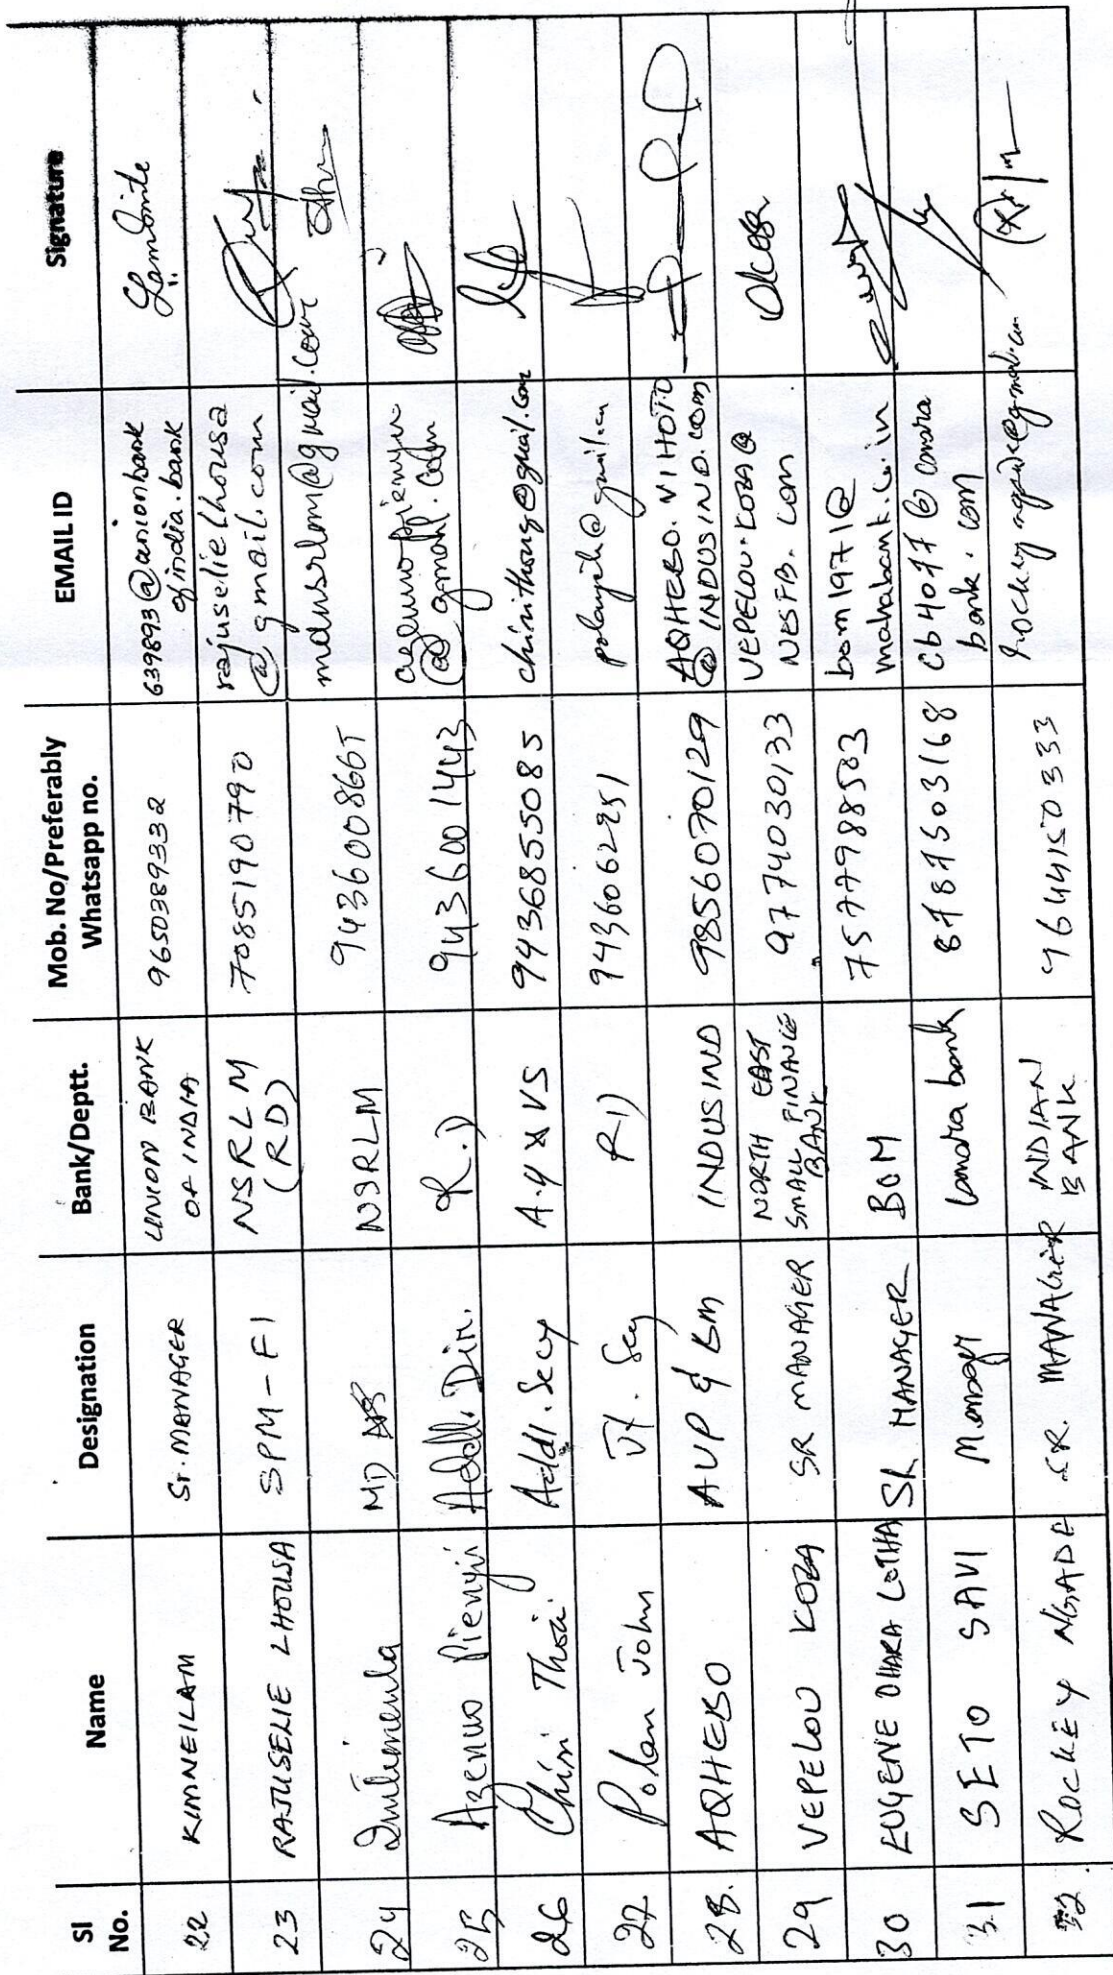 Sl No. Name Designation Bank/Deptt. Mob. No/Preferably Whatsapp no. EMAIL ID Signature
22 KIMNEILAM Sr. MANAGER UNION BANK OF INDIA 9650389332 639893@unionbank
ofindia.bank
23 RAJUSELIE LHOUSA SPM-FI NSRLM (RD) 7085190790 rajuselielhousa
@gmail.com
24 Imtimenla MD NSRLM 943600866T mdnsrlm@gmail.com
25 Azenuo Pienyü Addl. Dir. R.D 9436001443 azenuopienyu
@gmail.com
26 Chini Thoi Addl. Secy A.H & VS 9436855085 chinithong@gmail.com
27 Polan John Jt. Secy RD 9436062251
28. AQHEBO AVP & BM INDUSIND 9856070129 AQHEBO.VIHOTO
@INDUSIND.COM
29 VEPELOU KOZA SR MANAGER NORTH EAST SMALL FINANCE BANK 9774030133 VEPELOU.KOZA@
NESFB.com
30 EUGENE LOTHA SR MANAGER BOM 7577988503 bom1971@
mahabank.co.in
31 SETO SAVI Manager Canara bank 8787503168 Cb4077@canara
bank.com
32 ROCKEY NGADE SR. MANAGER INDIAN BANK